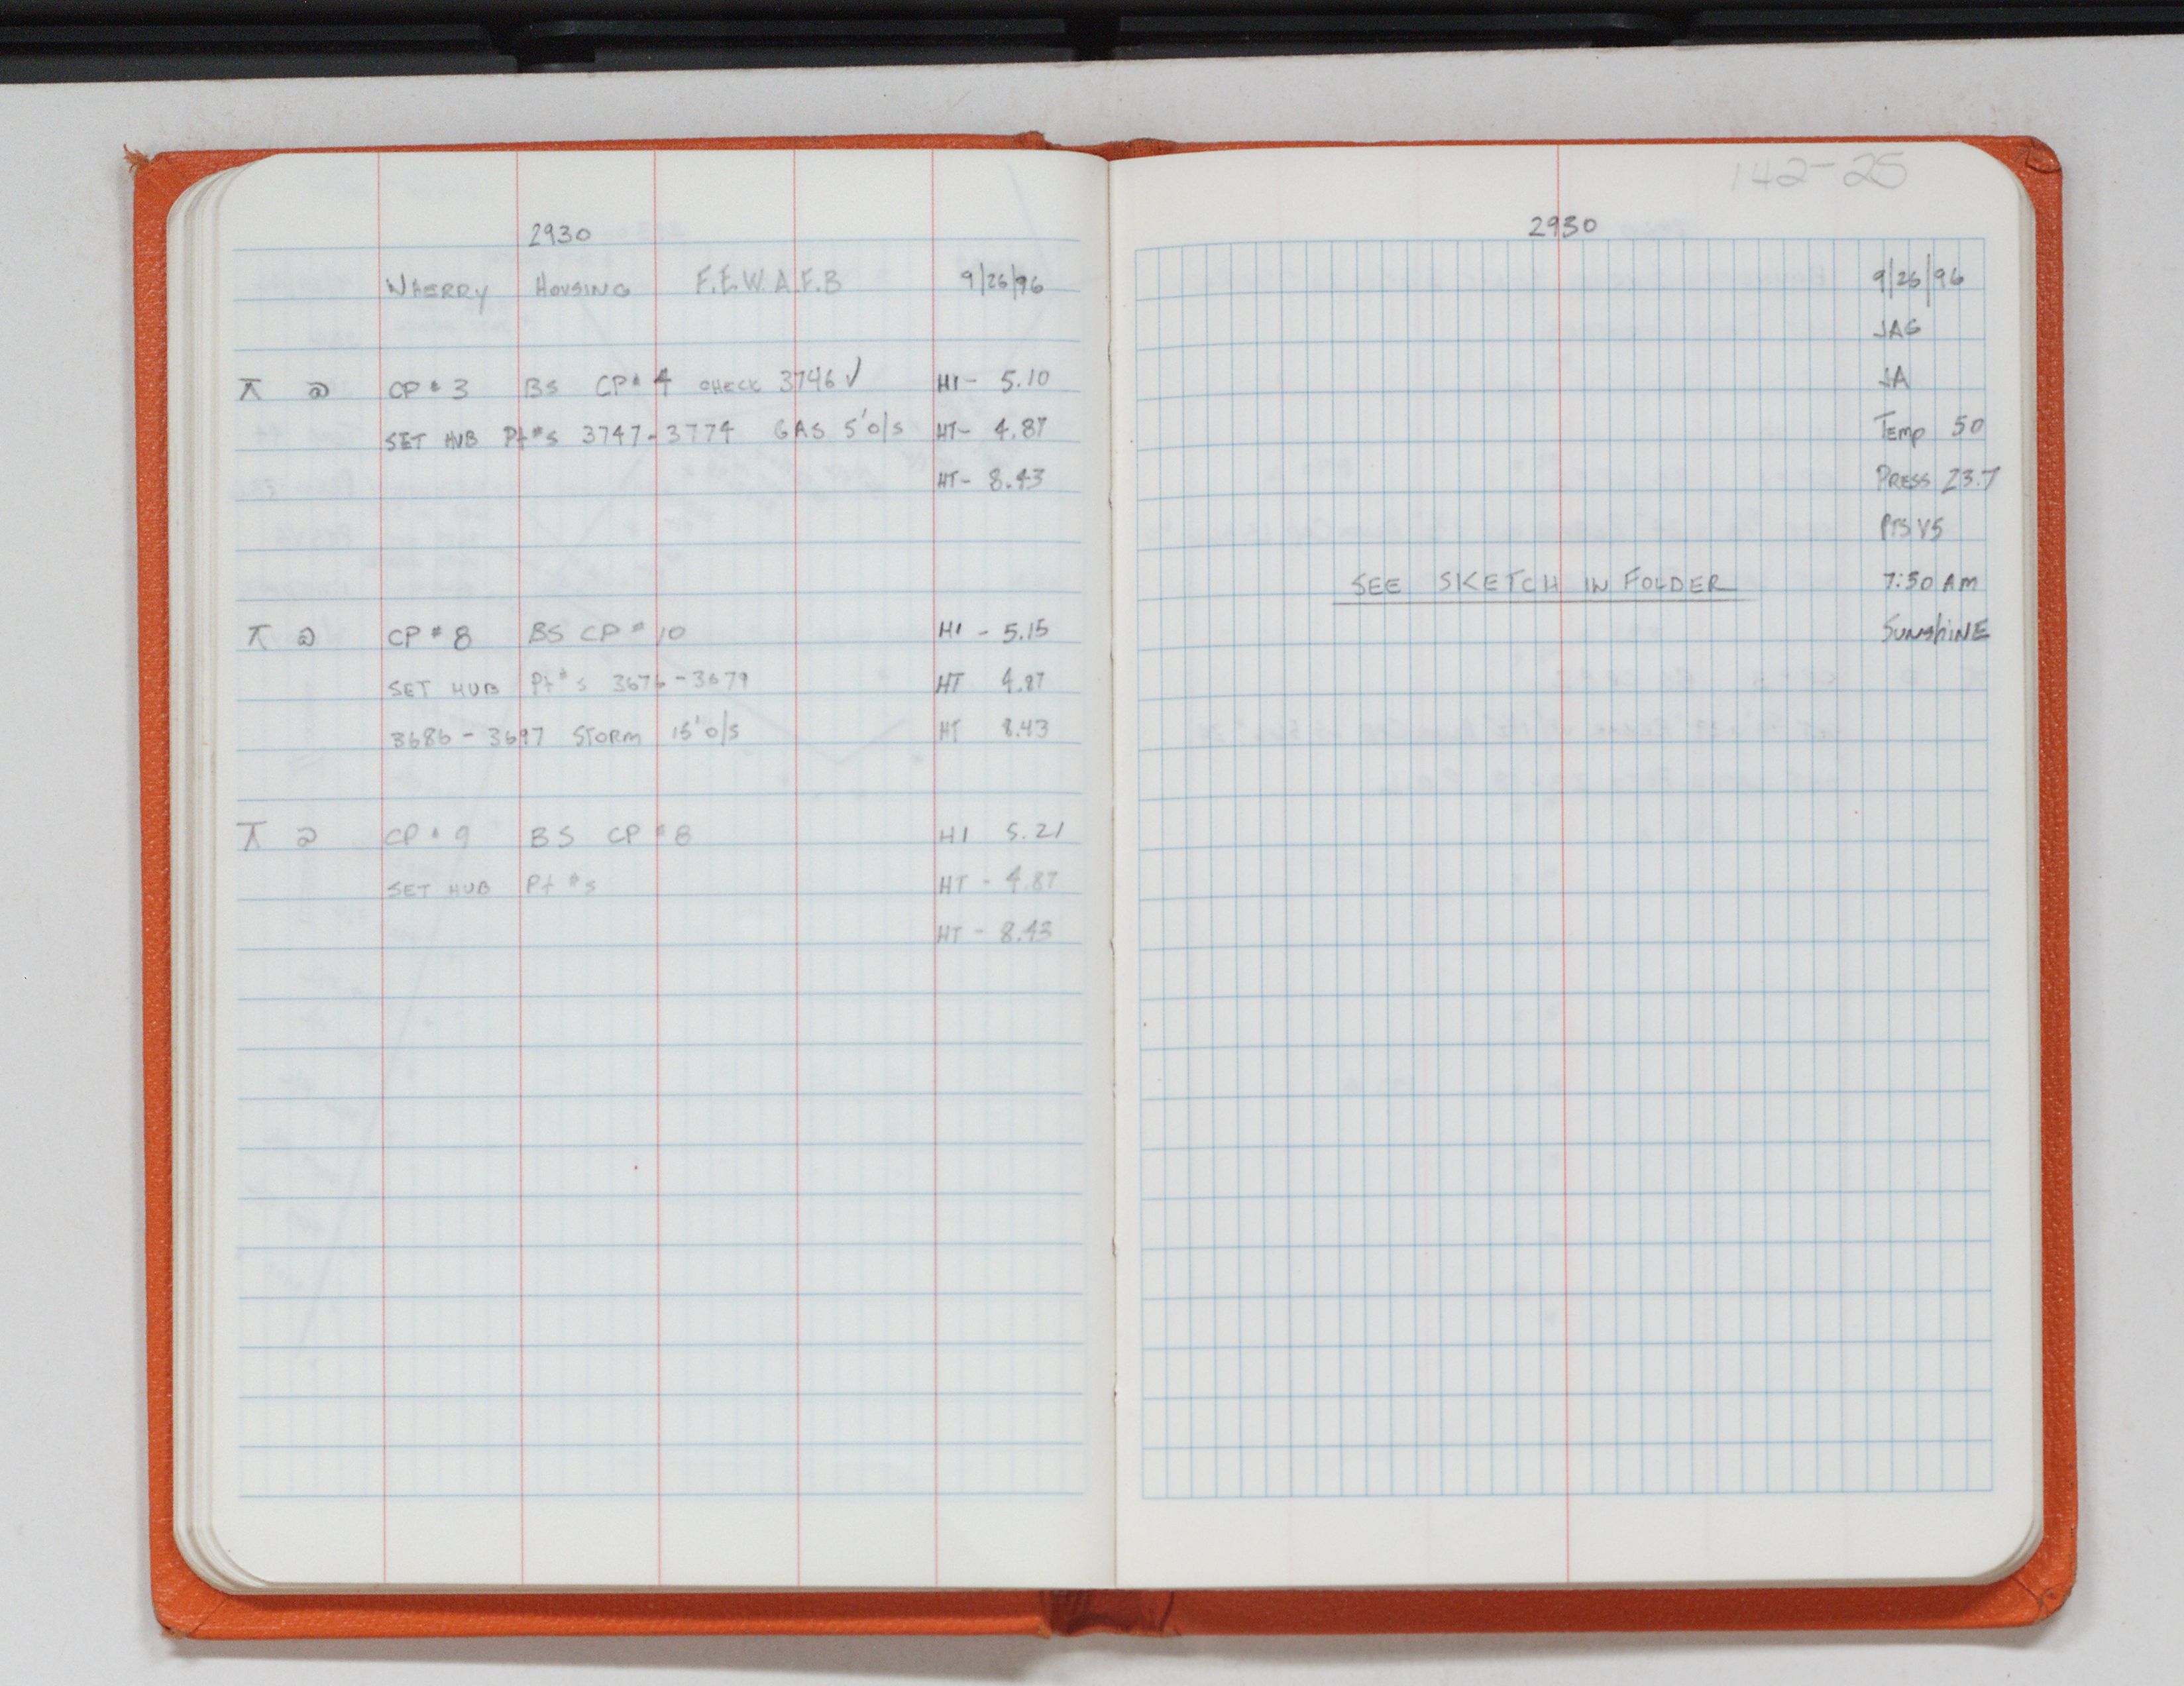 2930
WHERRY HOUSING F.E.W.A.F.B 9/26/96
⊼ @ CP#3 BS CP#4 CHECK 3746 ✓ HI - 5.10
SET HUB Pt#s 3747-3774 GAS 5' o/s HT- 4.87
HT- 8.43
⊼ @ CP#8 BS CP#10 HI - 5.15
SET HUB Pt#s 3676-3679 HT 4.87
3686-3697 STORM 15' o/s HT 8.43
⊼ @ CP#9 BS CP#8 HI 5.21
SET HUB Pt#s HT - 4.87
HT - 8.43
142-25
2930
9/26/96
JAG
JA
Temp 50
PRESS 23.7
PTS V5
7:50 AM
SEE SKETCH IN FOLDER
SunshinE